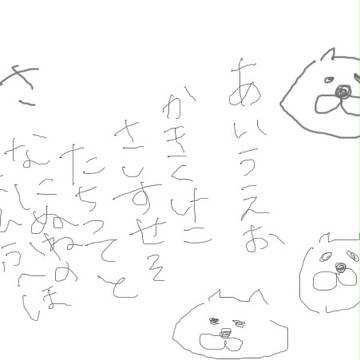 あいうえお
かきくけこ
さしすせそ
たちつてと
なにぬねの
はひふへほ
さ